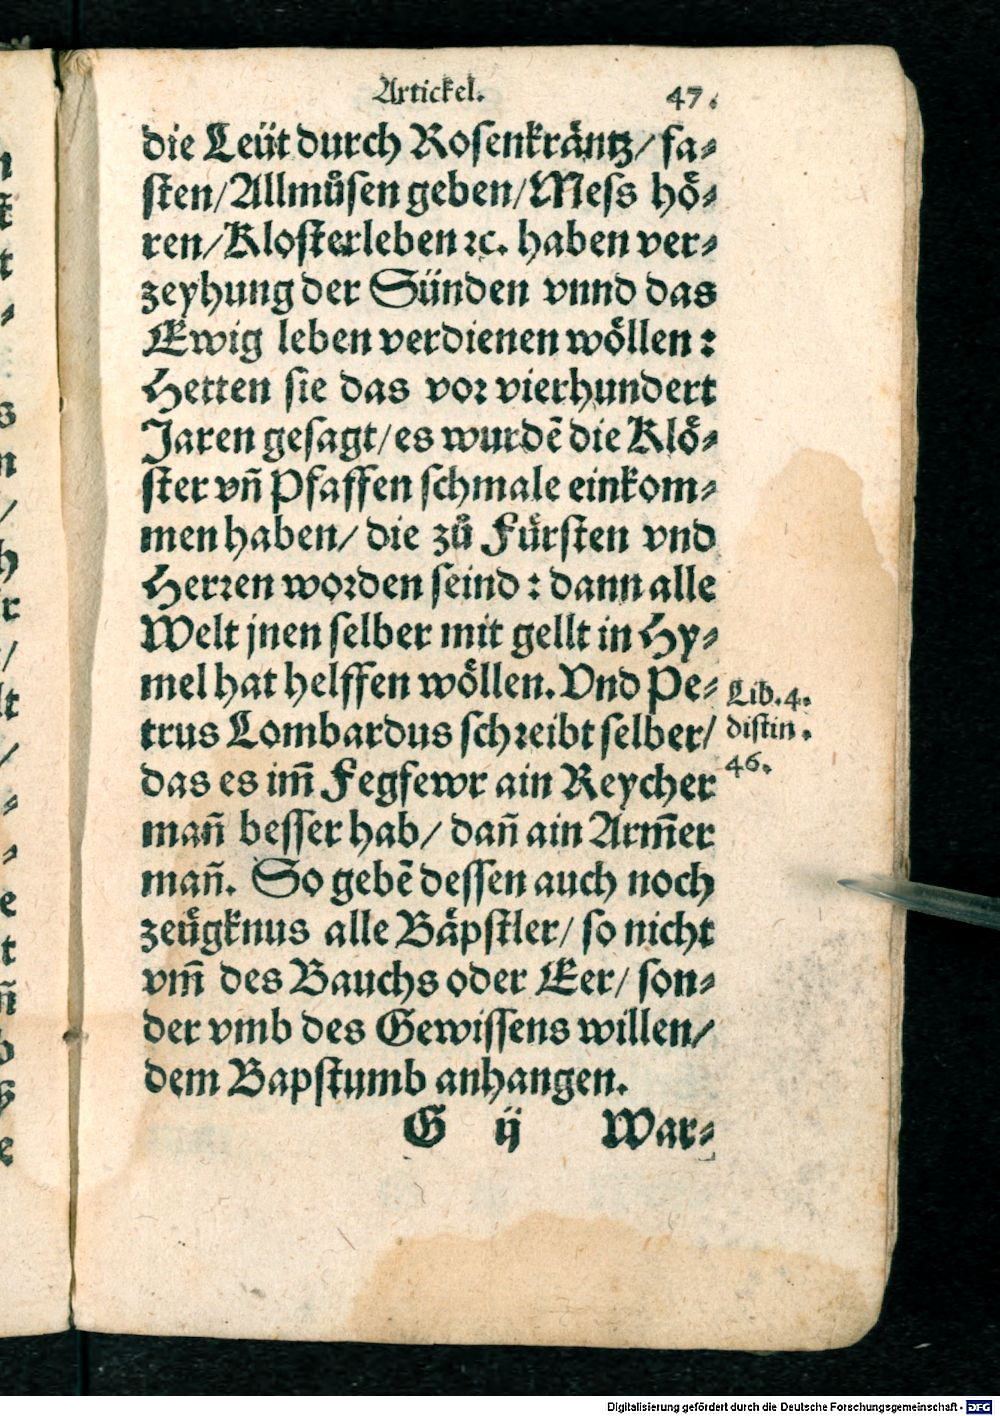 Artickel. 47.
die Leüt durch Rosenkräntz/ fa⸗
sten/ Allmůsen geben/ Mess hö⸗
ren/ Klosterleben ꝛc. haben ver⸗
zeyhung der Sünden vnnd das
Ewig leben verdienen wöllen:
Hetten sie das vor vierhundert
Jaren gesagt/ es wurdẽ die Klö⸗
ster vñ Pfaffen schmale einkom⸗
men haben/ die zů Fürsten vnd
Herren worden seind: dann alle
Welt jnen selber mit gellt in Hy⸗
mel hat helffen wöllen. Vnd Pe⸗
trus Lombardus schreibt selber/
das es im̃ Fegfewr ain Reycher
mañ besser hab/ dañ ain Arm̃er
mañ. So gebẽ dessen auch noch
zeügknus alle Bäpstler/ so nicht
vm̃ des Bauchs oder Eer/ son⸗
der vmb des Gewissens willen/
dem Bapstumb anhangen.
G ij War⸗
Lib. 4.
distin.
46.
Digitalisierung gefördert durch die Deutsche Forschungsgemeinschaft - DFG